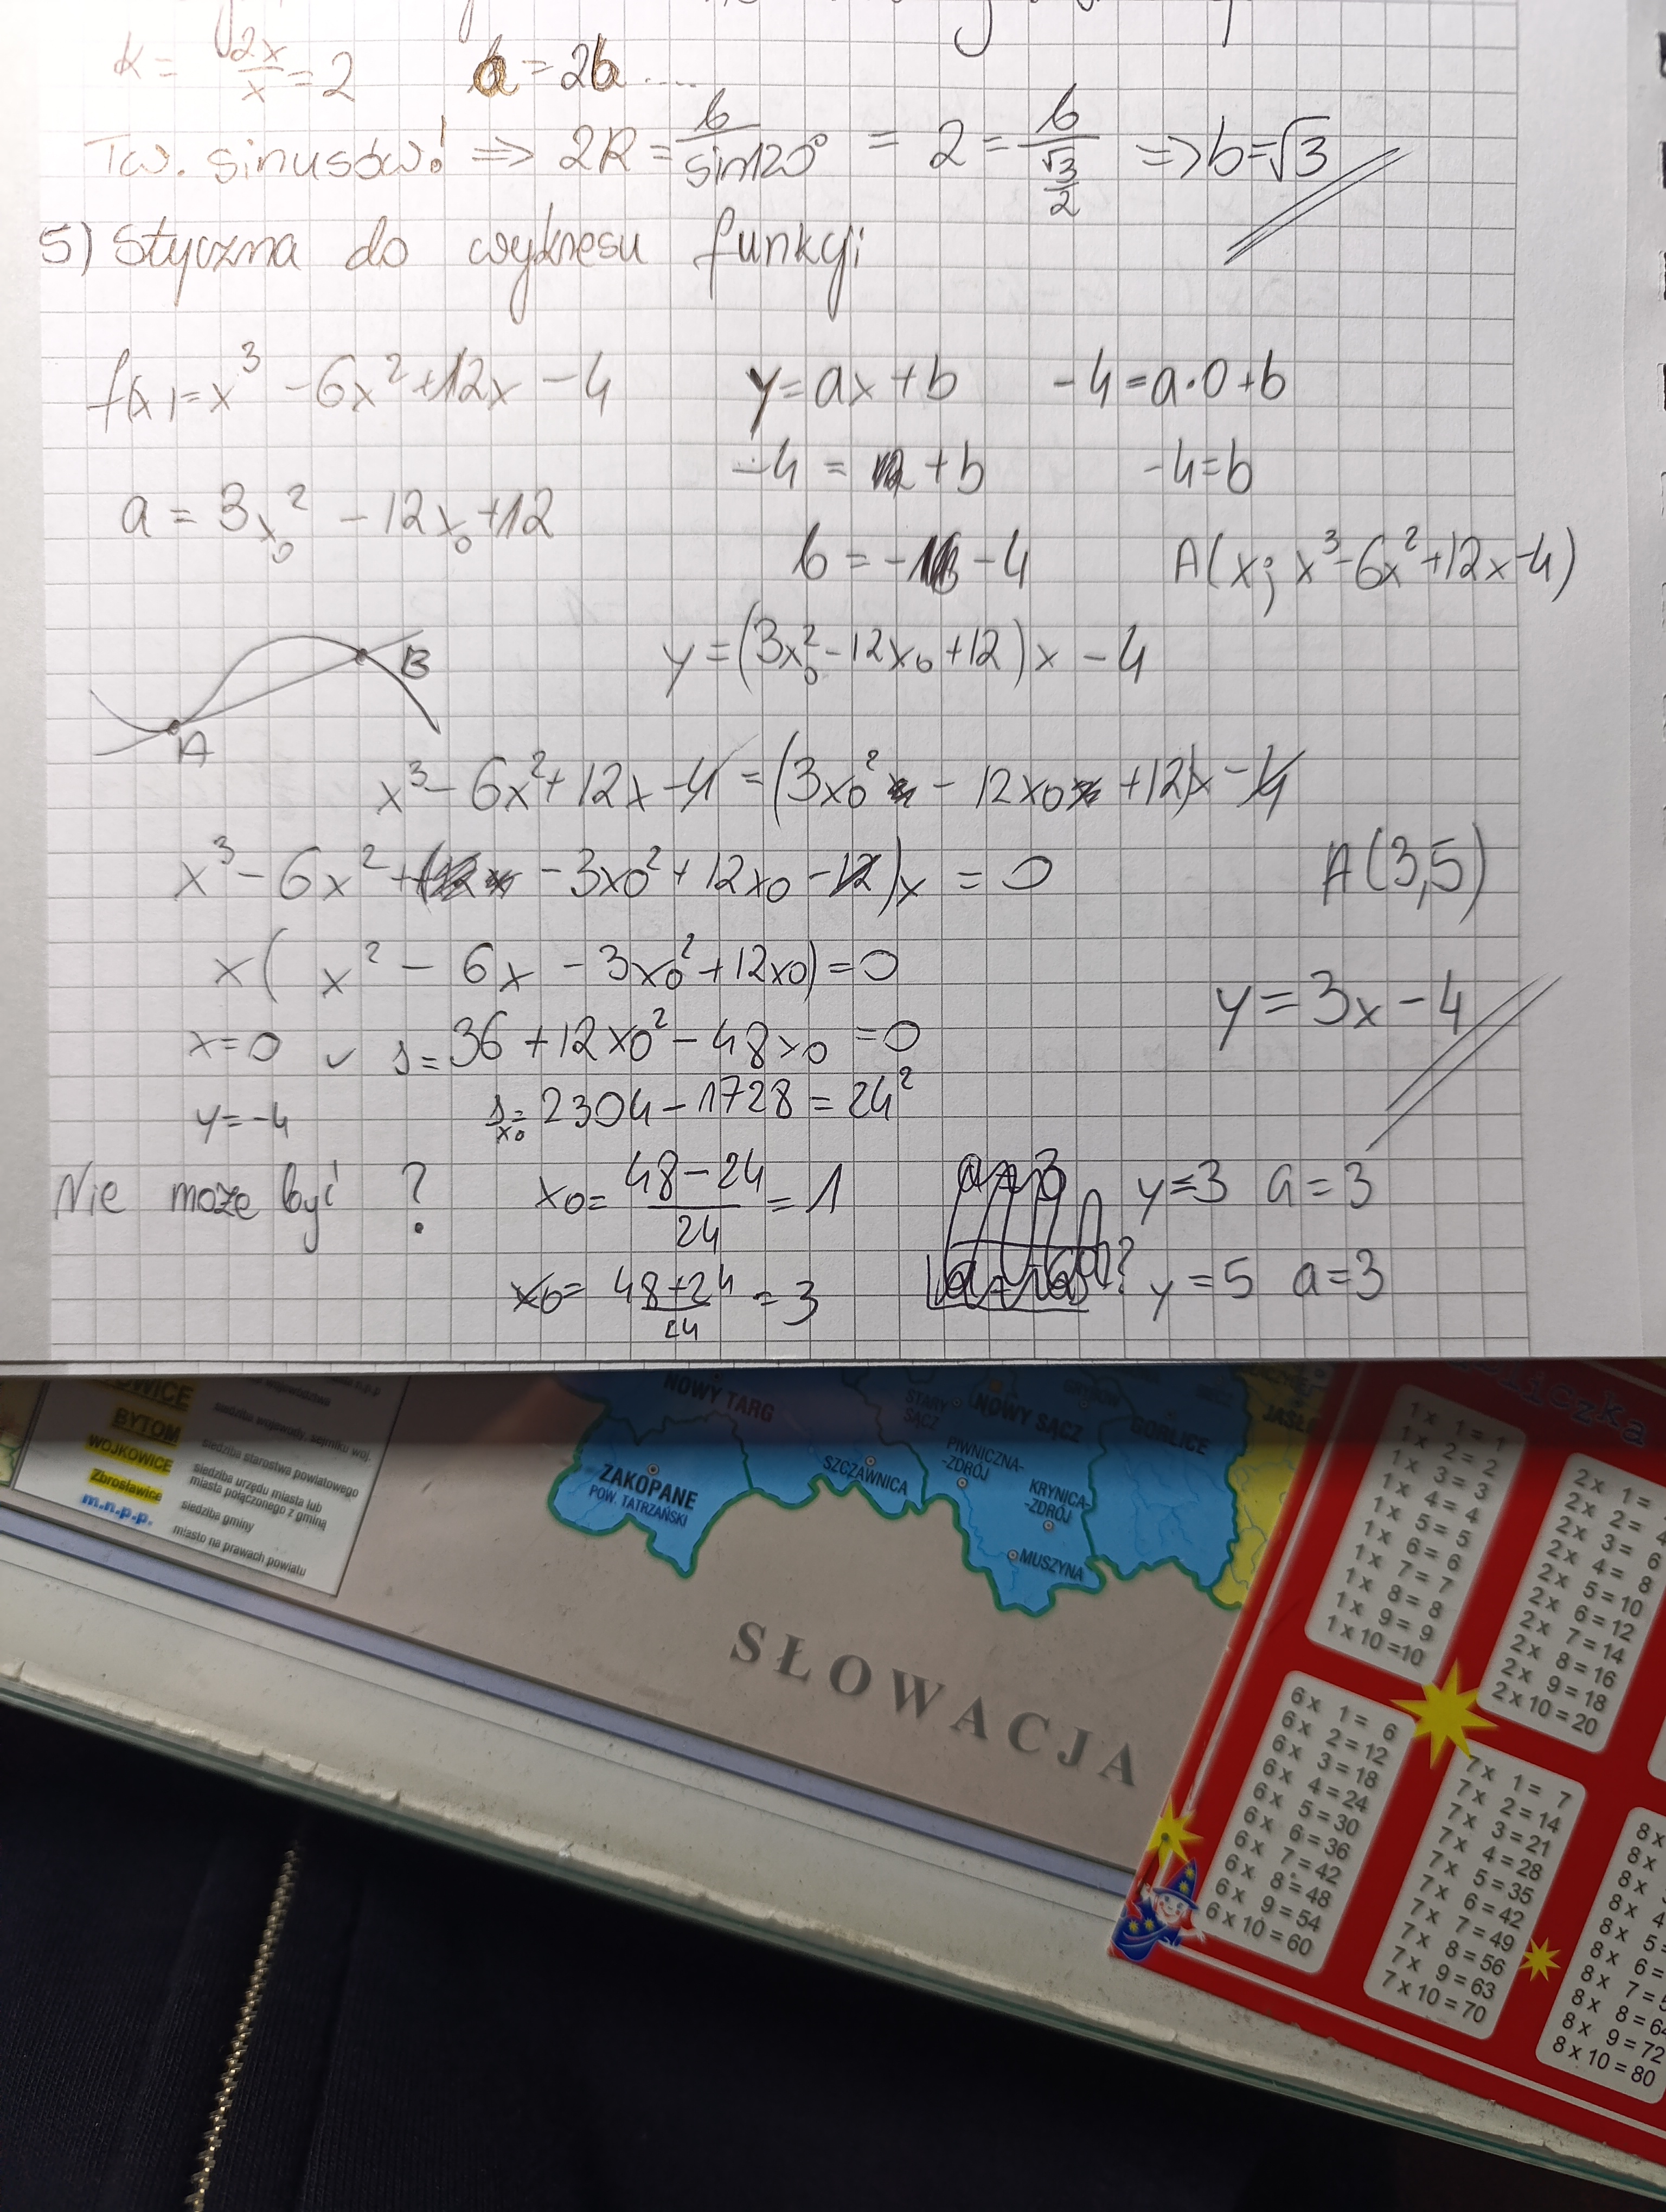 k = 2x/x = 2 a = 2b ...
Tw. sinusów! => 2R = b/sin120° = 2 = b/(√3/2) => b=√3
5) Styczna do wykresu funkcji
f(x)=x³ -6x² +12x -4 y=ax+b -4=a·0+b
-4 = +b -4=b
a = 3x₀² -12x₀ +12
b = -4 A(x; x³-6x²+12x-4)
y=(3x₀²-12x₀+12)x -4
B
A
x³-6x²+12x-4=(3x₀² - 12x₀ +12)x -4
x³-6x²+( -3x₀²+12x₀-12)x = 0 A(3,5)
x( x² - 6x -3x₀²+12x₀)=0
y=3x-4
x=0 ∨ Δ=36+12x₀²-48x₀=0
y=-4 Δx₀=2304-1728=24²
Nie może być ? x₀= 48-24/24 =1 y=3 a=3
x₀= 48+24/24 =3 ? y=5 a=3
BYTOM
WOJKOWICE
Zbrosławice
m.n.p.p.
siedziba wojewody, sejmiku woj.
siedziba starostwa powiatowego
siedziba urzędu miasta lub
miasta połączonego z gminą
siedziba gminy
miasto na prawach powiatu
NOWY TARG
STARY
SĄCZ
NOWY SĄCZ
GORLICE
JASŁO
ZAKOPANE
POW. TATRZAŃSKI
SZCZAWNICA
PIWNICZNA-
-ZDRÓJ
KRYNICA-
-ZDRÓJ
MUSZYNA
SŁOWACJA
1 x 1 = 1
1 x 2 = 2
1 x 3 = 3
1 x 4 = 4
1 x 5 = 5
1 x 6 = 6
1 x 7 = 7
1 x 8 = 8
1 x 9 = 9
1 x 10 =10
2 x 1 =
2 x 2 = 4
2 x 3 = 6
2 x 4 = 8
2 x 5 = 10
2 x 6 = 12
2 x 7 = 14
2 x 8 = 16
2 x 9 = 18
2 x 10 = 20
6 x 1 = 6
6 x 2 = 12
6 x 3 = 18
6 x 4 = 24
6 x 5 = 30
6 x 6 = 36
6 x 7 = 42
6 x 8 = 48
6 x 9 = 54
6 x 10 = 60
7 x 1 = 7
7 x 2 = 14
7 x 3 = 21
7 x 4 = 28
7 x 5 = 35
7 x 6 = 42
7 x 7 = 49
7 x 8 = 56
7 x 9 = 63
7 x 10 = 70
8 x
8 x
8 x
8 x 4
8 x 5 =
8 x 6 =
8 x 7 = 5
8 x 8 = 64
8 x 9 = 72
8 x 10 = 80